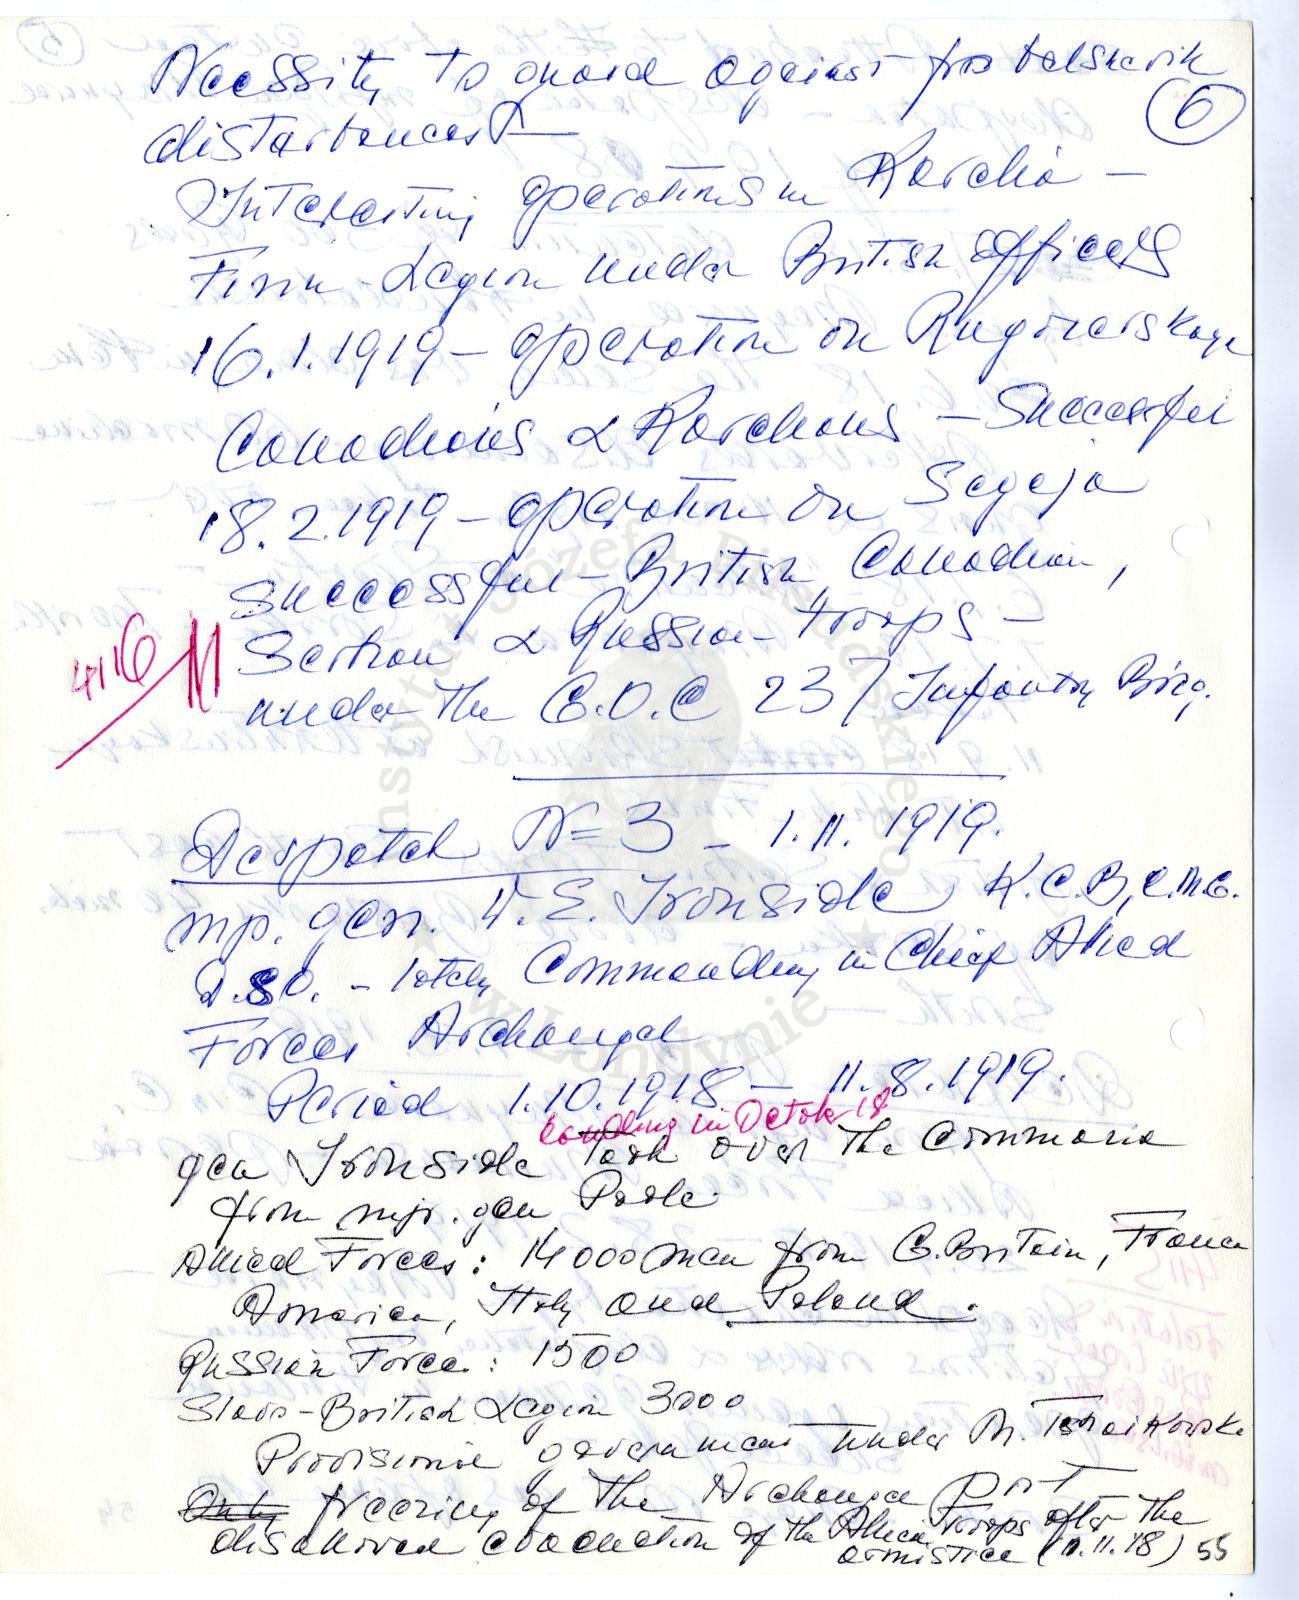 Necessity to guard against pro bolshevik
6
disturbances
Interesting operations in Karelia -
Finn-Legion under British officers
16.1.1919 - operation on Rugozerskaya
Canadians & Karelians - Successful
18.2.1919 - operation on Segeja
successful - British, Canadian,
Serbian & Russian troops -
under the G.O.C 237 Infantry Brig.
4116
Despatch N= 3 - 1.11.1919.
mp. gen. W.E. Ironside K.C.B, C.M.G.
D.SO. - lately Commanding in Chief Allied
Forces Archangel
Period 1.10.1918 - 11.8.1919.
landing in Octob 18
gen Ironside took over the command
from mjr. gen Poole.
Allied Forces: 14000 men from G. Britain, France
America, Italy and Poland.
Russian Force: 1500
Slavo-British Legion 3000
Provisional government under M. Tshaikovski
Only freezing of the Archangel port
disallowed evacuation of the Allied troops after the
armistice (11.11.18)
55
Instytut Józefa Piłsudskiego
w Londynie